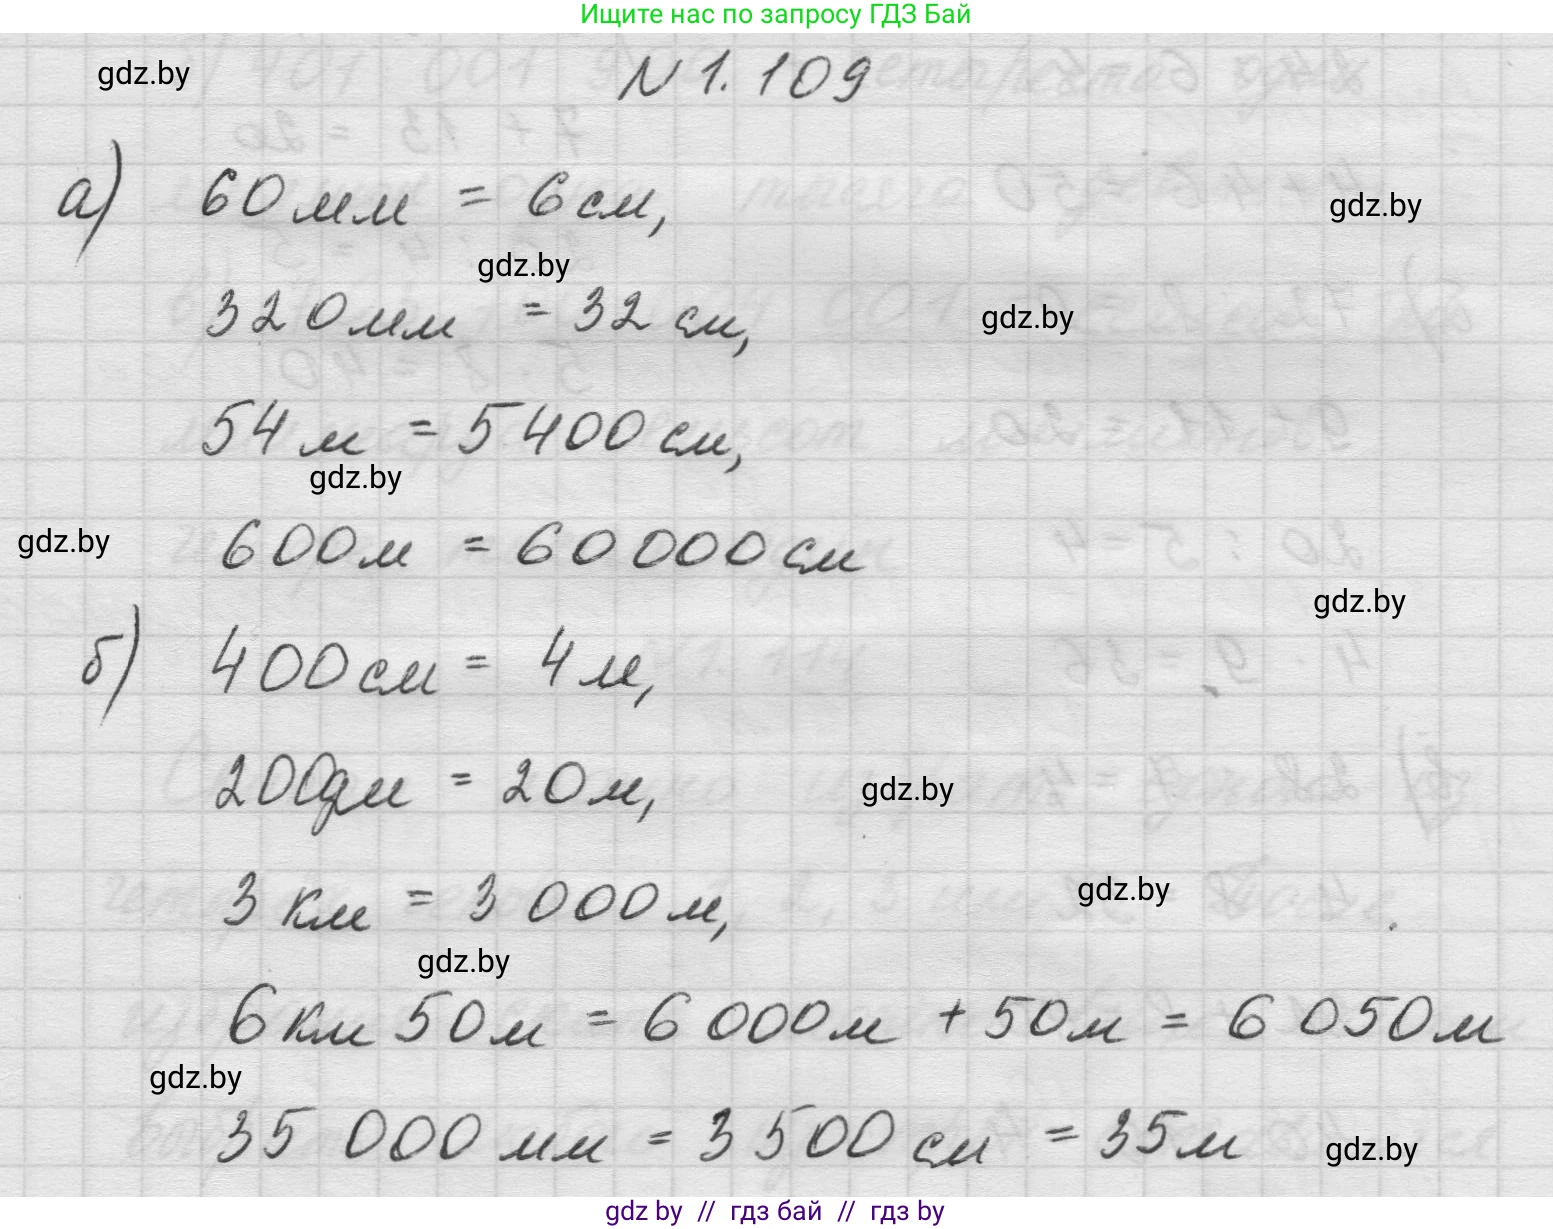 Ищите нас по запросу ГДЗ Бай
gdz.by
N 1. 109
а) 60 мм = 6 см,
gdz.by
gdz.by
320 мм = 32 см,
gdz.by
54 м = 5 400 см,
gdz.by
gdz.by
600 м = 60 000 см
gdz.by
б) 400 см = 4 м,
200 дм = 20 м,
gdz.by
3 км = 3 000 м,
gdz.by
gdz.by
6 км 50 м = 6 000 м + 50 м = 6 050 м
gdz.by
35 000 мм = 3 500 см = 35 м
gdz.by
gdz by // гдз бай // гдз by